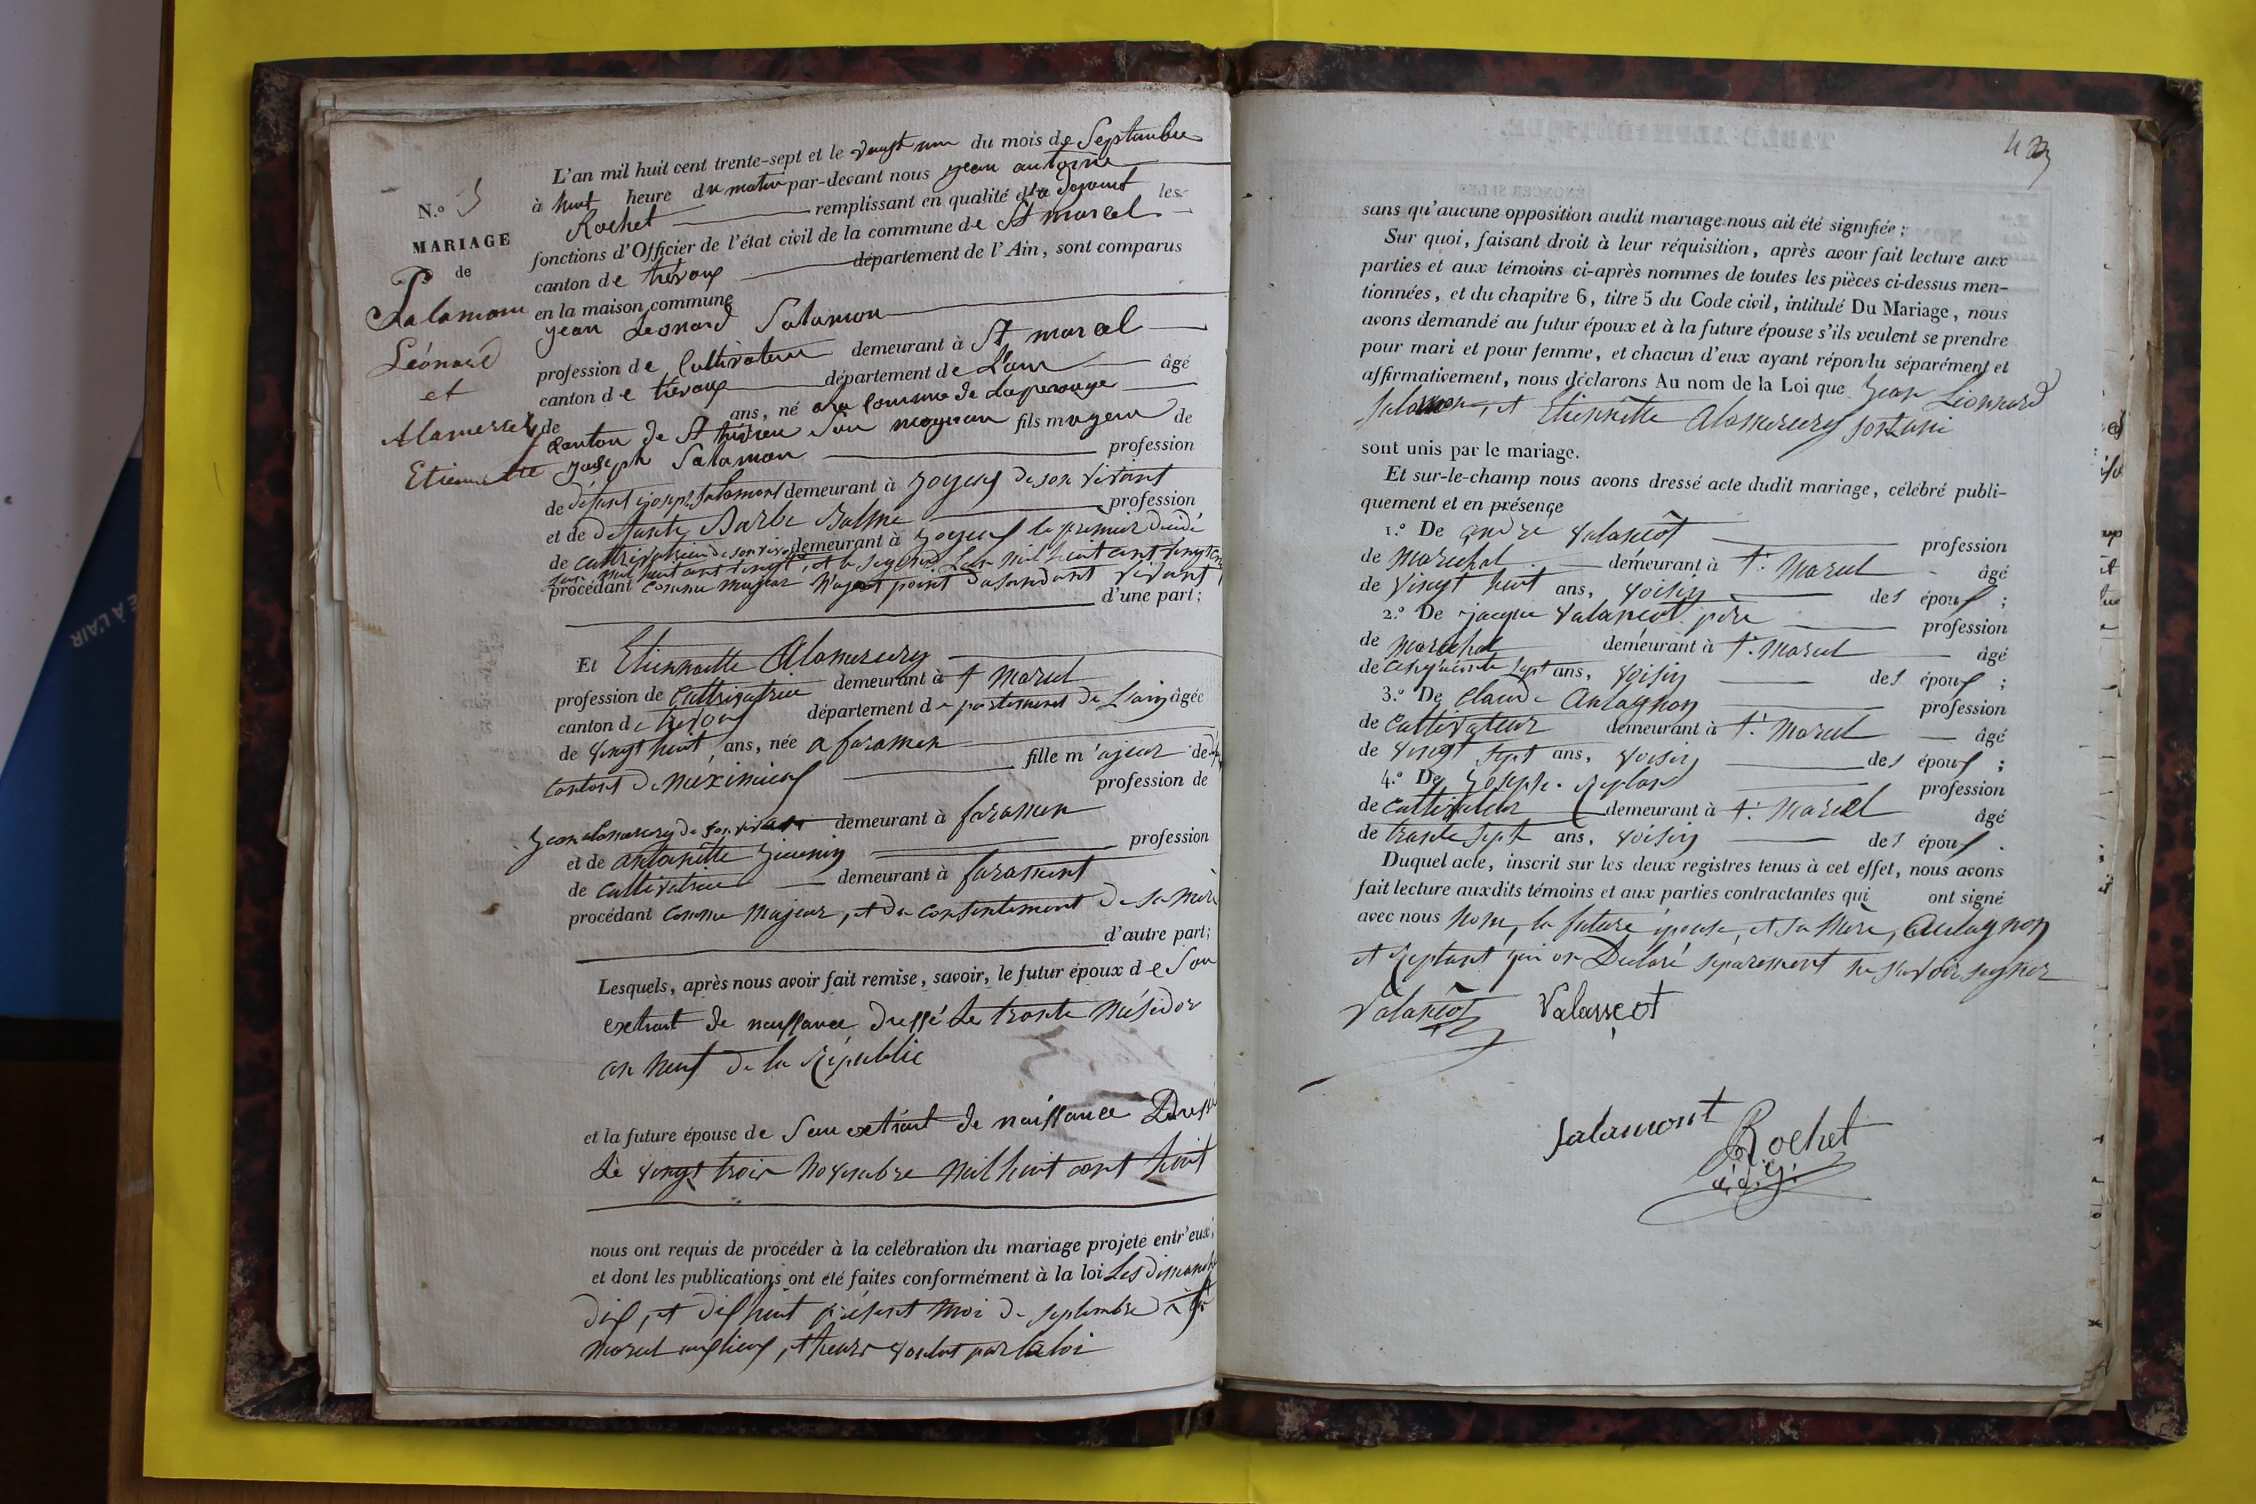 N.º 3
MARIAGE
de
Salamon
Léonard
et
Alamercery
Etiennette
L'an mil huit cent trente-sept et le vingt un du mois de Septembre
à huit heure du matin par-devant nous jean antoine
Rochet remplissant en qualité d' adjoint les
fonctions d'Officier de l'état civil de la commune de St marcel
canton de trévoux département de l'Ain, sont comparus
en la maison commune
jean Léonard Salamon
profession de Cultivateur demeurant à St marcel
canton de trévoux département de L'ain âgé
de ans, né a la Commune de Laperouge
canton de St trivier Sur moignan fils majeur de
joseph Salamon profession
de défunt joseph Salamont demeurant à joyeux de son vivant
et de défunte Barbe Balme profession
de cultivatrice de son vivant demeurant à joyeux le premier décédé
l'an mil huit cent vingt, et la segonde L'an mil huit cent vingt
procédant comme majeur N'ayant point d'asendant vivant
d'une part;
Et Etiennette Alamercery
profession de cultivatrice demeurant à St Marcel
canton de trévoux département de partement de L'ain âgée
de vingt huit ans, née a faramen
fille majeur de
canton de méximieux profession de
jean alamercery de son vivant demeurant à faramen
et de antoinette jeunen profession
de cultivatrice demeurant à farament
procédant comme Majeur, et du consentement de sa mère
d'autre part;
Lesquels, après nous avoir fait remise, savoir, le futur époux de Son
extrait de naissance dressé Le trante Mésidor
an neuf de la République
et la future épouse de Son extrait de naissance Dressé
Le vingt trois Novembre mil huit cent huit
nous ont requis de procéder à la celébration du mariage projeté entr'eux,
et dont les publications ont été faites conformément à la loi Les dimanche
dix, et dix huit présent moi de septembre a St
Marcel aux lieux, et heure voulut par la loi
433
sans qu'aucune opposition audit mariage nous ait été signifiée;
Sur quoi, faisant droit à leur réquisition, après avoir fait lecture aux
parties et aux témoins ci-après nommes de toutes les pièces ci-dessus men-
tionnées, et du chapitre 6, titre 5 du Code civil, intitulé Du Mariage, nous
avons demandé au futur époux et à la future épouse s'ils veulent se prendre
pour mari et pour femme, et chacun d'eux ayant répondu séparément et
affirmativement, nous déclarons Au nom de la Loi que Jean Léonnard
Salamon, et Etiennette Alamercery
sont unis par le mariage.
Et sur-le-champ nous avons dressé acte dudit mariage, célébré publi-
quement et en présence
1.º De andré Valançot profession
de Maréchal demeurant à St Marcel âgé
de vingt huit ans, voisin des époux;
2.º De jacque Valancot père profession
de Maréchal demeurant à St Marcel âgé
de cinquante sept ans, voisin des époux;
3.º De Claude Aulagnon profession
de cultivateur demeurant à St Marcel âgé
de vingt sept ans, voisin des époux;
4.º De Joseph Replant profession
de cultivateur demeurant à St Marcel âgé
de trante sept ans, voisin des époux.
Duquel acte, inscrit sur les deux registres tenus à cet effet, nous avons
fait lecture auxdits témoins et aux parties contractantes qui ont signé
avec nous Non, la future épouse, et sa Mère, Aulagnon
et Replant qui on Déclaré séparément ne savoir signer
Valançot Valansçot
Salamont
Rochet